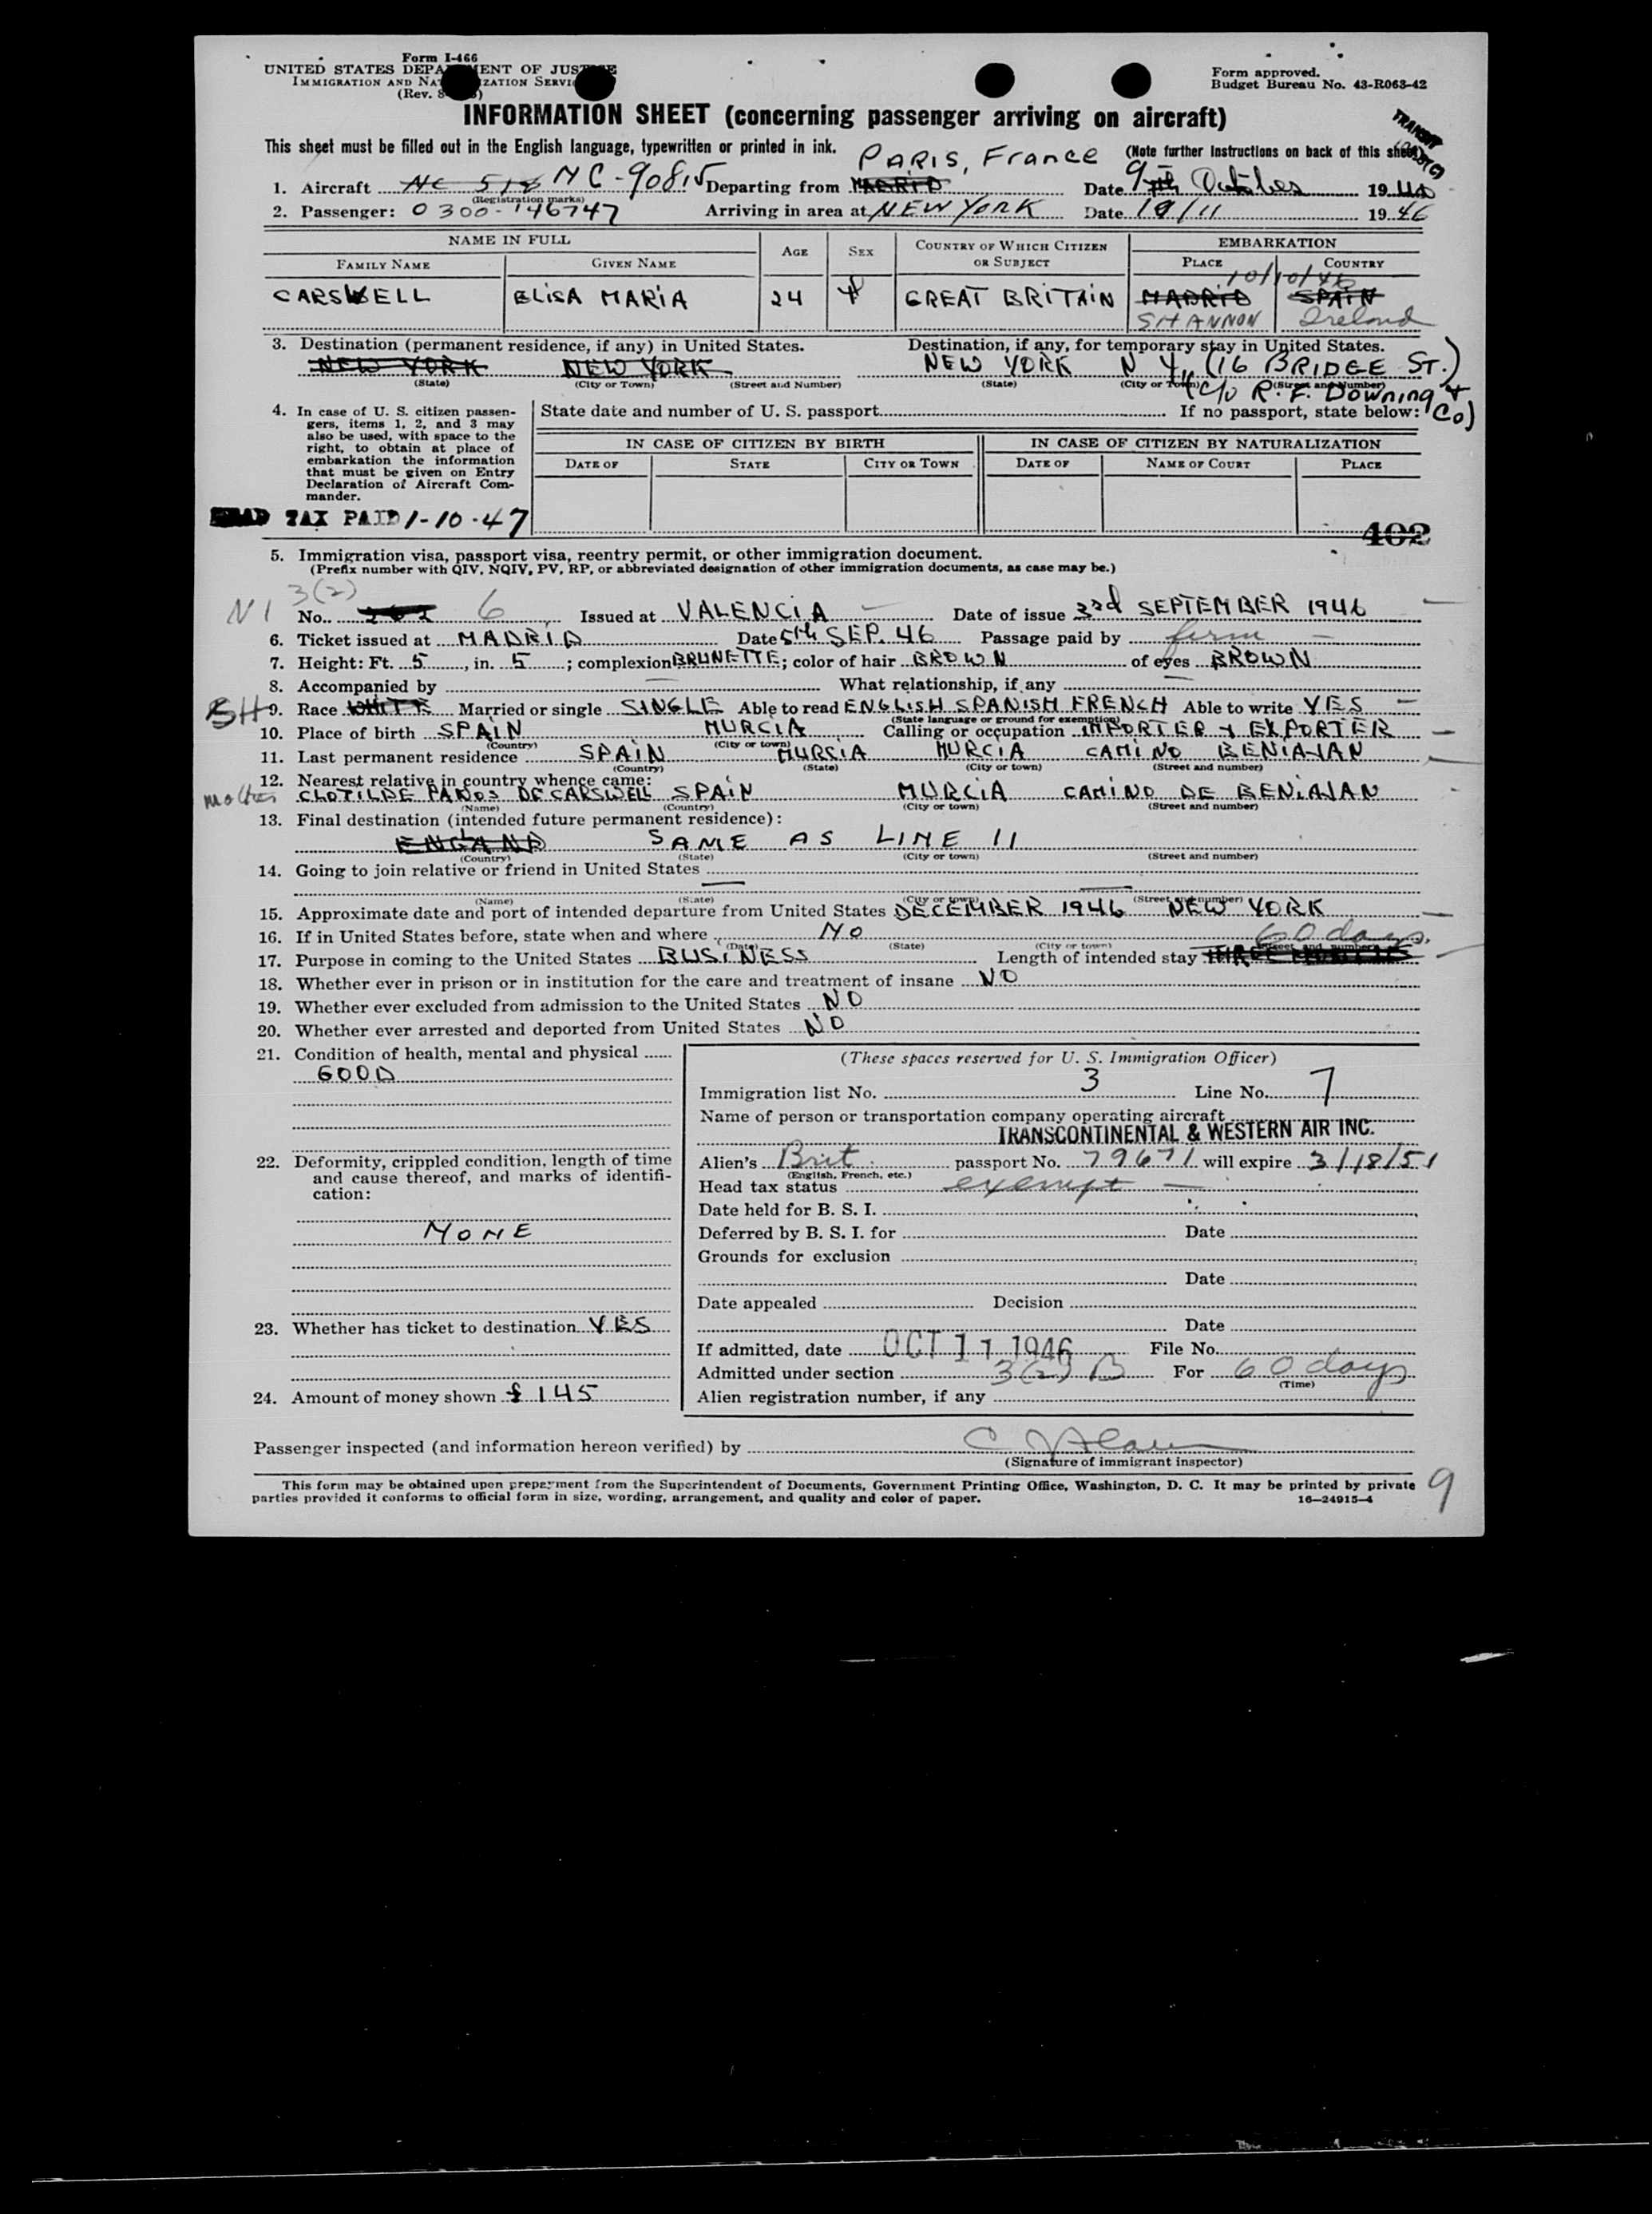 Form I-466
UNITED STATES DEPA ENT OF JUS
IMMIGRATION AND NA ZATION SERVI
(Rev. 8
Form approved.
Budget Bureau No. 43-R063-42
INFORMATION SHEET (concerning passenger arriving on aircraft)
TRANSIT
This sheet must be filled out in the English language, typewritten or printed in ink.
(Note further instructions on back of this sheet)
PARIS, France
1. Aircraft NC 518 NC-90815 Departing from MADRID Date 9th October 19 46
(Registration marks)
2. Passenger: 0300-146747 Arriving in area at NEW YORK Date 10/11 19 46
NAME IN FULL
FAMILY NAME GIVEN NAME AGE SEX COUNTRY OF WHICH CITIZEN OR SUBJECT EMBARKATION PLACE COUNTRY
10/10/46
CARSWELL ELISA MARIA 24 GREAT BRITAIN MADRID SPAIN
SHANNON Ireland
3. Destination (permanent residence, if any) in United States. Destination, if any, for temporary stay in United States.
NEW YORK NEW YORK NEW YORK N Y, (16 BRIDGE ST.)
(State) (City or Town) (Street and Number) (State) (City or Town) (Street and Number)
(C/o R. F. Downing & Co)
4. In case of U. S. citizen passen-
gers, items 1, 2, and 3 may
also be used, with space to the
right, to obtain at place of
embarkation the information
that must be given on Entry
Declaration of Aircraft Com-
mander.
State date and number of U. S. passport If no passport, state below:
IN CASE OF CITIZEN BY BIRTH IN CASE OF CITIZEN BY NATURALIZATION
DATE OF STATE CITY OR TOWN DATE OF NAME OF COURT PLACE
HEAD TAX PAID 1-10-47
402
5. Immigration visa, passport visa, reentry permit, or other immigration document.
(Prefix number with QIV, NQIV, PV, RP, or abbreviated designation of other immigration documents, as case may be.)
3(2)
NI No. 6 Issued at VALENCIA Date of issue 3rd SEPTEMBER 1946
6. Ticket issued at MADRID Date 5th SEP. 46 Passage paid by firm
7. Height: Ft. 5, in. 5; complexion BRUNETTE; color of hair BROWN of eyes BROWN
8. Accompanied by What relationship, if any
9. Race WHITE Married or single SINGLE Able to read ENGLISH SPANISH FRENCH Able to write YES
(State language or ground for exemption)
10. Place of birth SPAIN MURCIA Calling or occupation IMPORTER Y EXPORTER
(Country) (City or town)
11. Last permanent residence SPAIN MURCIA MURCIA CAMINO BENIAJAN
(Country) (State) (City or town) (Street and number)
12. Nearest relative in country whence came:
mother CLOTILDE PANOS DE CARSWELL SPAIN MURCIA CAMINO DE BENIAJAN
(Name) (Country) (City or town) (Street and number)
13. Final destination (intended future permanent residence):
ENGLAND SAME AS LINE 11
(Country) (State) (City or town) (Street and number)
14. Going to join relative or friend in United States
(Name) (State) (City or town) (Street and number)
15. Approximate date and port of intended departure from United States DECEMBER 1946 NEW YORK
16. If in United States before, state when and where NO
(Date) (State) (City or town) (Street and number)
60 days.
17. Purpose in coming to the United States BUSINESS Length of intended stay THREE MONTHS
18. Whether ever in prison or in institution for the care and treatment of insane NO
19. Whether ever excluded from admission to the United States NO
20. Whether ever arrested and deported from United States NO
21. Condition of health, mental and physical
GOOD
22. Deformity, crippled condition, length of time
and cause thereof, and marks of identifi-
cation:
NONE
23. Whether has ticket to destination YES
24. Amount of money shown £ 145
(These spaces reserved for U. S. Immigration Officer)
Immigration list No. 3 Line No. 7
Name of person or transportation company operating aircraft
TRANSCONTINENTAL & WESTERN AIR INC.
Alien's Brit. passport No. 79671 will expire 3/18/51
(English, French, etc.)
Head tax status exempt
Date held for B. S. I.
Deferred by B. S. I. for Date
Grounds for exclusion
Date
Date appealed Decision
Date
If admitted, date OCT 11 1946 File No.
Admitted under section 3(2) B For 60 days
(Time)
Alien registration number, if any
Passenger inspected (and information hereon verified) by
(Signature of immigrant inspector)
This form may be obtained upon prepayment from the Superintendent of Documents, Government Printing Office, Washington, D. C. It may be printed by private
parties provided it conforms to official form in size, wording, arrangement, and quality and color of paper. 16—24915-4
9